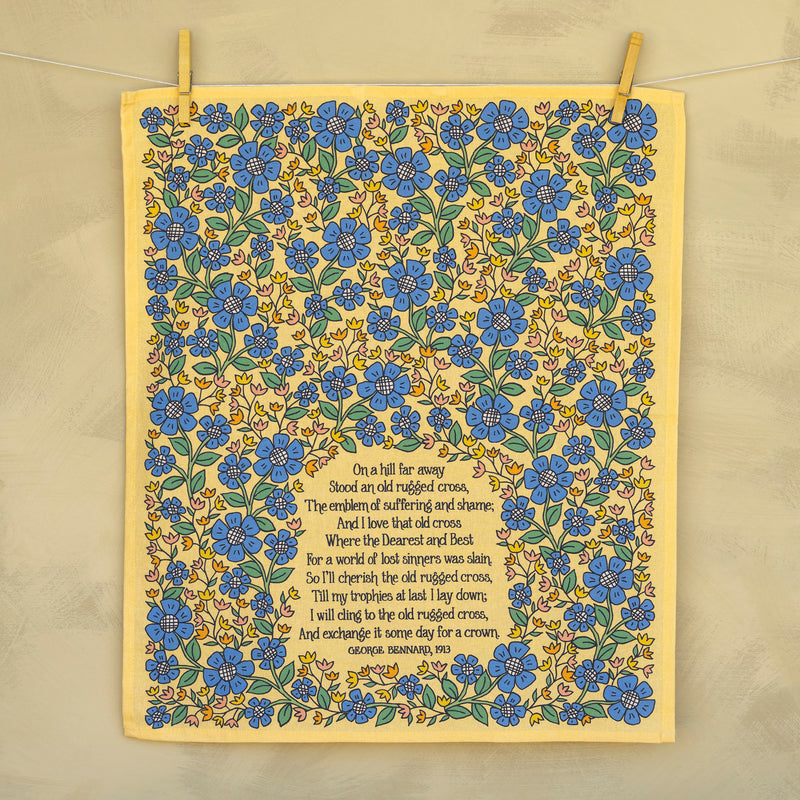 On a hill far away
Stood an old rugged cross,
The emblem of suffering and shame;
And I love that old cross
Where the Dearest and Best
For a world of lost sinners was slain.
So I'll cherish the old rugged cross,
Till my trophies at last I lay down;
I will cling to the old rugged cross,
And exchange it some day for a crown.
GEORGE BENNARD, 1913